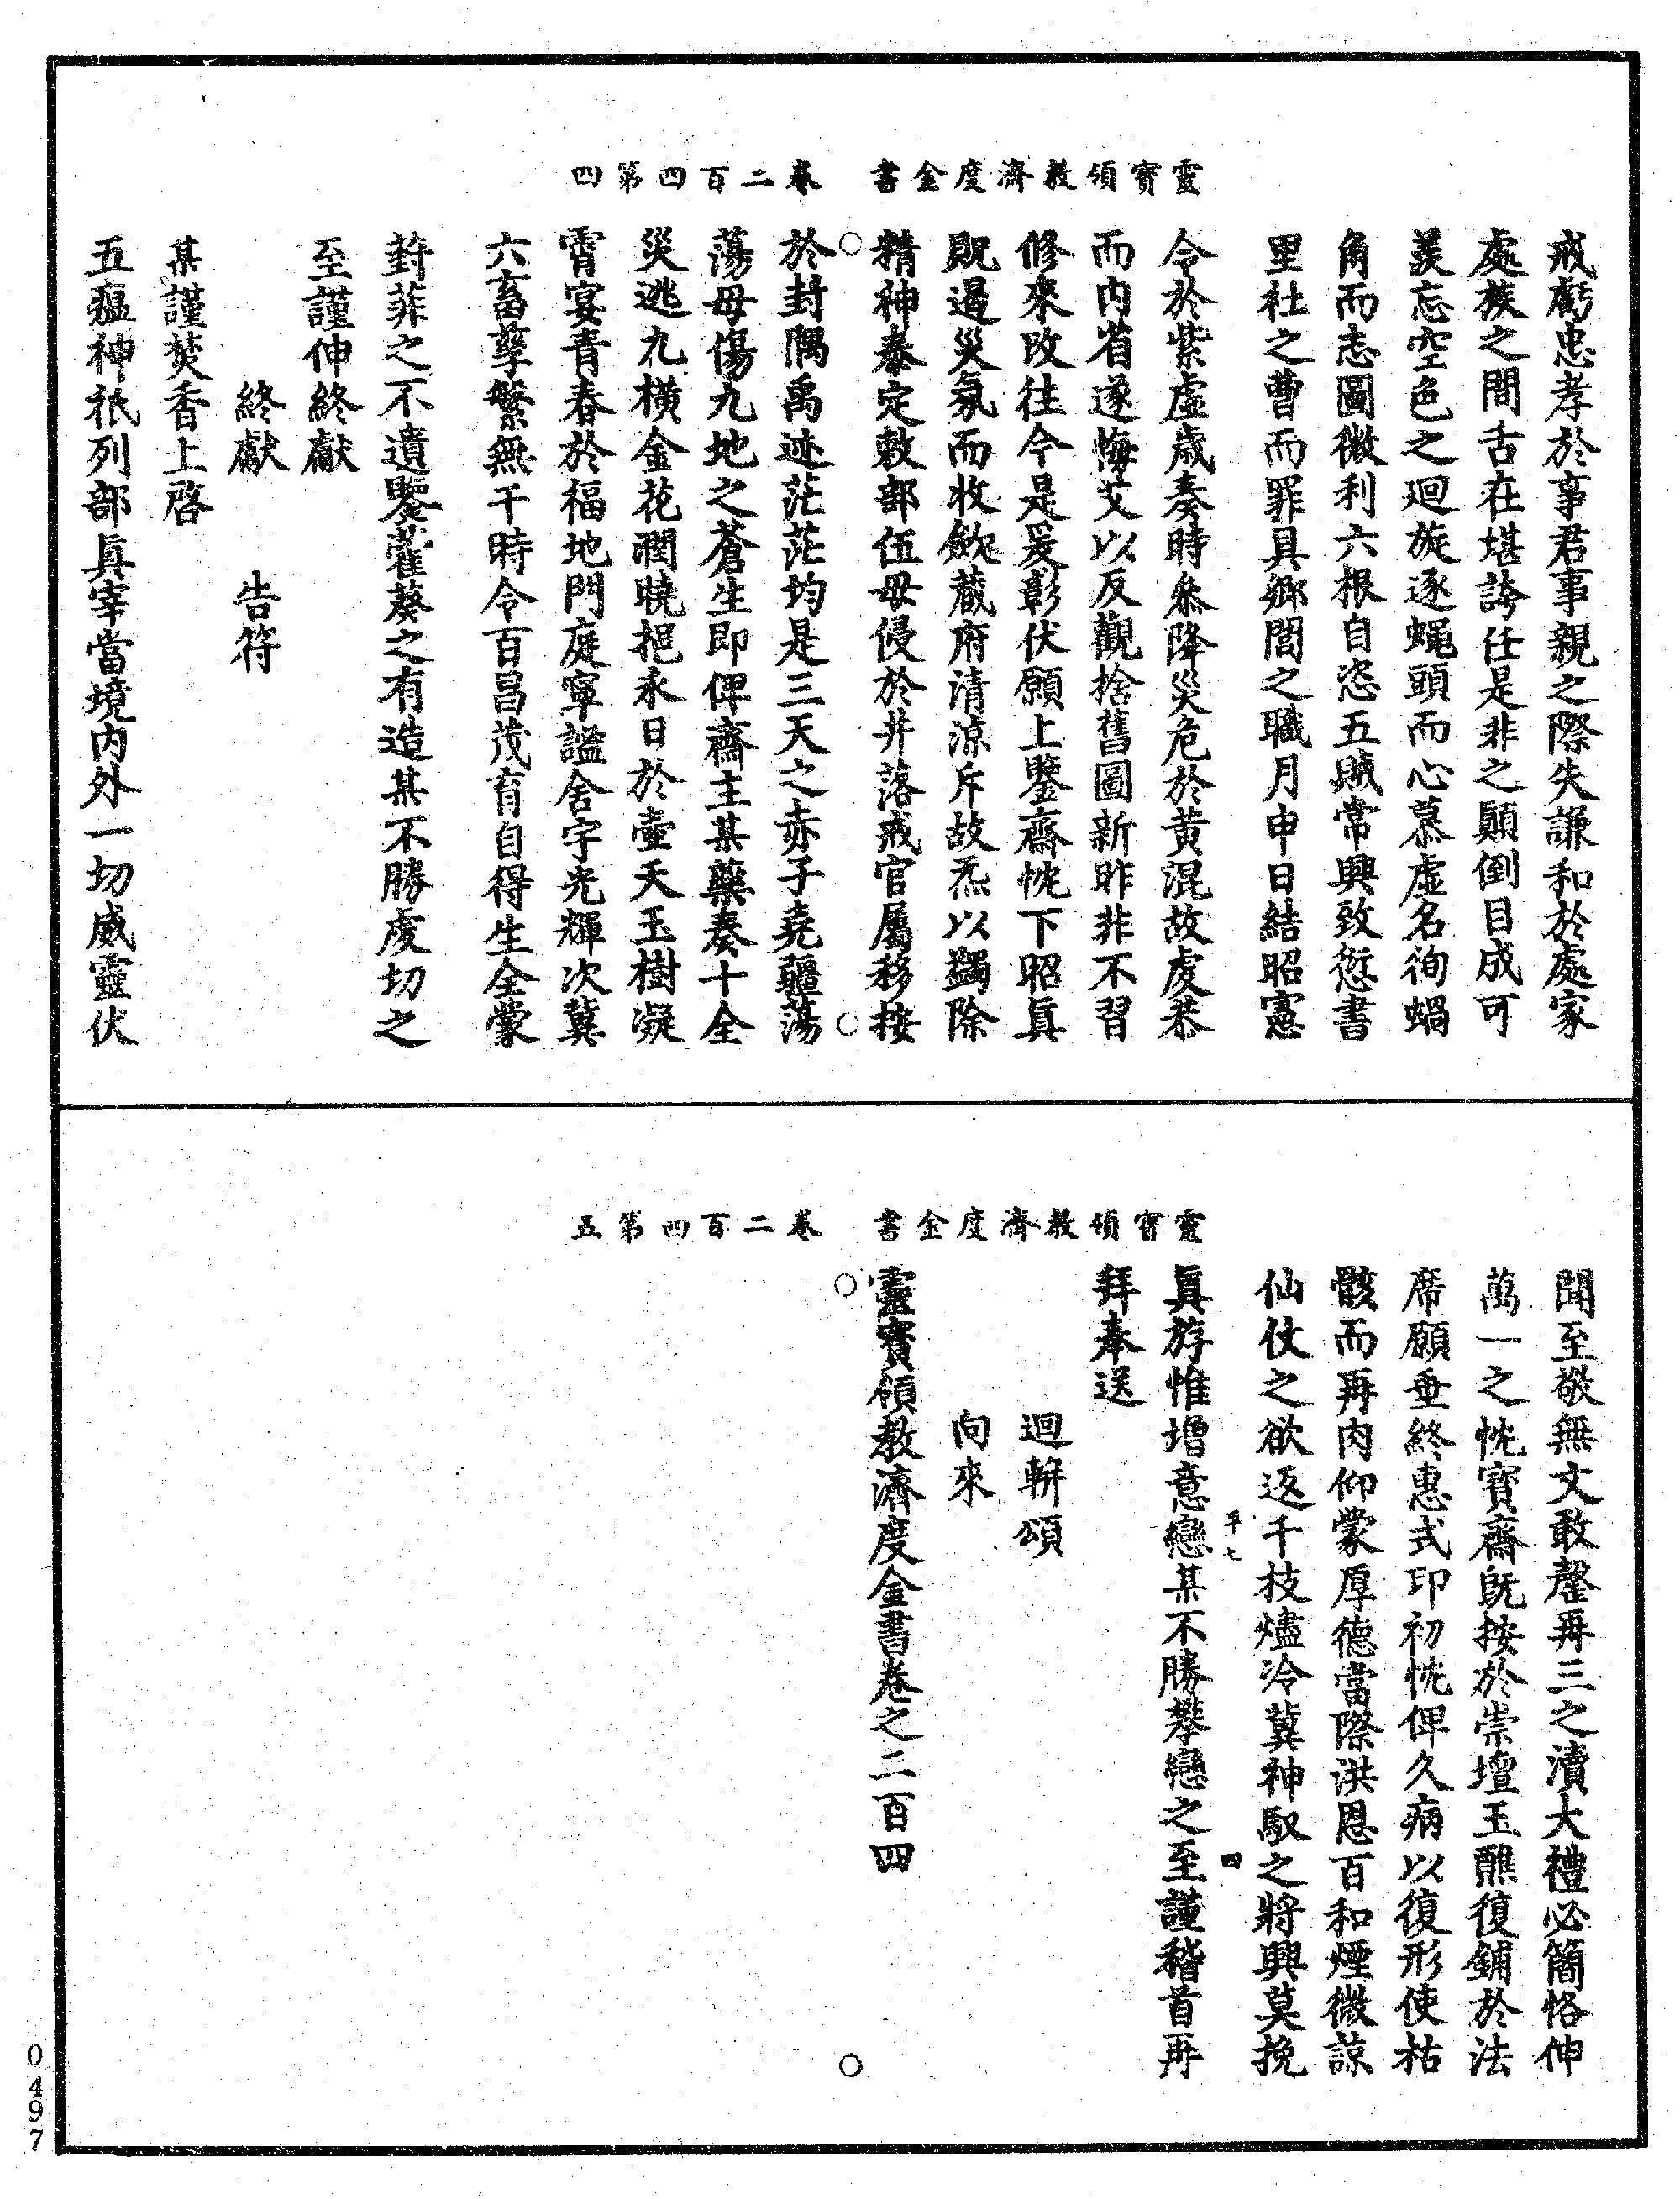 靈寶領教濟度金書　卷二百四第四
戒虧忠孝於事君事親之際失謙和於處家
處族之間舌在堪誇任是非之顛倒目成可
羨忘空色之迴旋逐蠅頭而心慕虛名徇蝸
角而志圖微利六根自恣五賊常興致愆書
里社之曹而罪具鄉閭之職月申日結昭憲
令於紫虛歲奏時叅降災危於黃混故虔恭
而內省遂悔艾以反觀捨舊圖新昨非不習
修來改往今是爰彰伏願上鑒齋忱下昭眞
貺遏災氛而收斂藏府清涼斥故炁以蠲除
精神泰定敕部伍毋侵於井落戒官屬移按
於封隅禹迹茫茫均是三天之赤子堯疆蕩
蕩毋傷九地之蒼生即俾齋主某藥奏十全
災逃九橫金花潤曉挹永日於壺天玉樹凝
霄宴青春於福地門庭寧謐舍宇光輝次冀
六畜孳繁無干時令百昌茂育自得生全蒙
葑菲之不遺鑒藿葵之有造某不勝虔切之
至謹伸終獻
終獻　告符
某謹焚香上啓
五瘟神祇列部眞宰當境內外一切威靈伏
靈寶領教濟度金書　卷二百四第五
聞至敬無文敢罄再三之瀆大禮必簡恪伸
萬一之忱寶齋旣按於崇壇玉醮復鋪於法
席願垂終惠式印初忱俾久病以復形使枯
骸而再肉仰蒙厚德當際洪恩百和煙微諒
仙仗之欲返千枝燼冷冀神馭之將興莫挽
平七　四
眞斿惟增意戀某不勝攀戀之至謹稽首再
拜奉送
迴軿頌
向來
靈寶領教濟度金書卷之二百四
0497